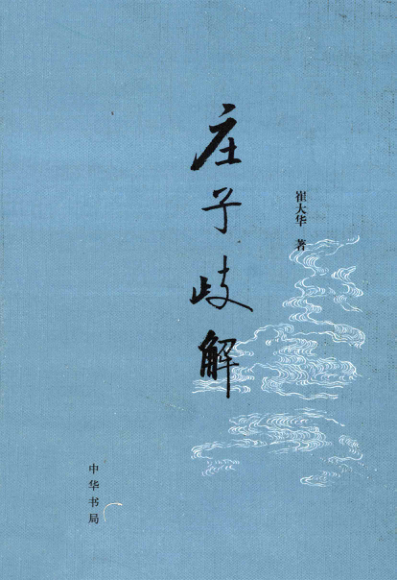 庄子歧解
崔大华 著
中华书局